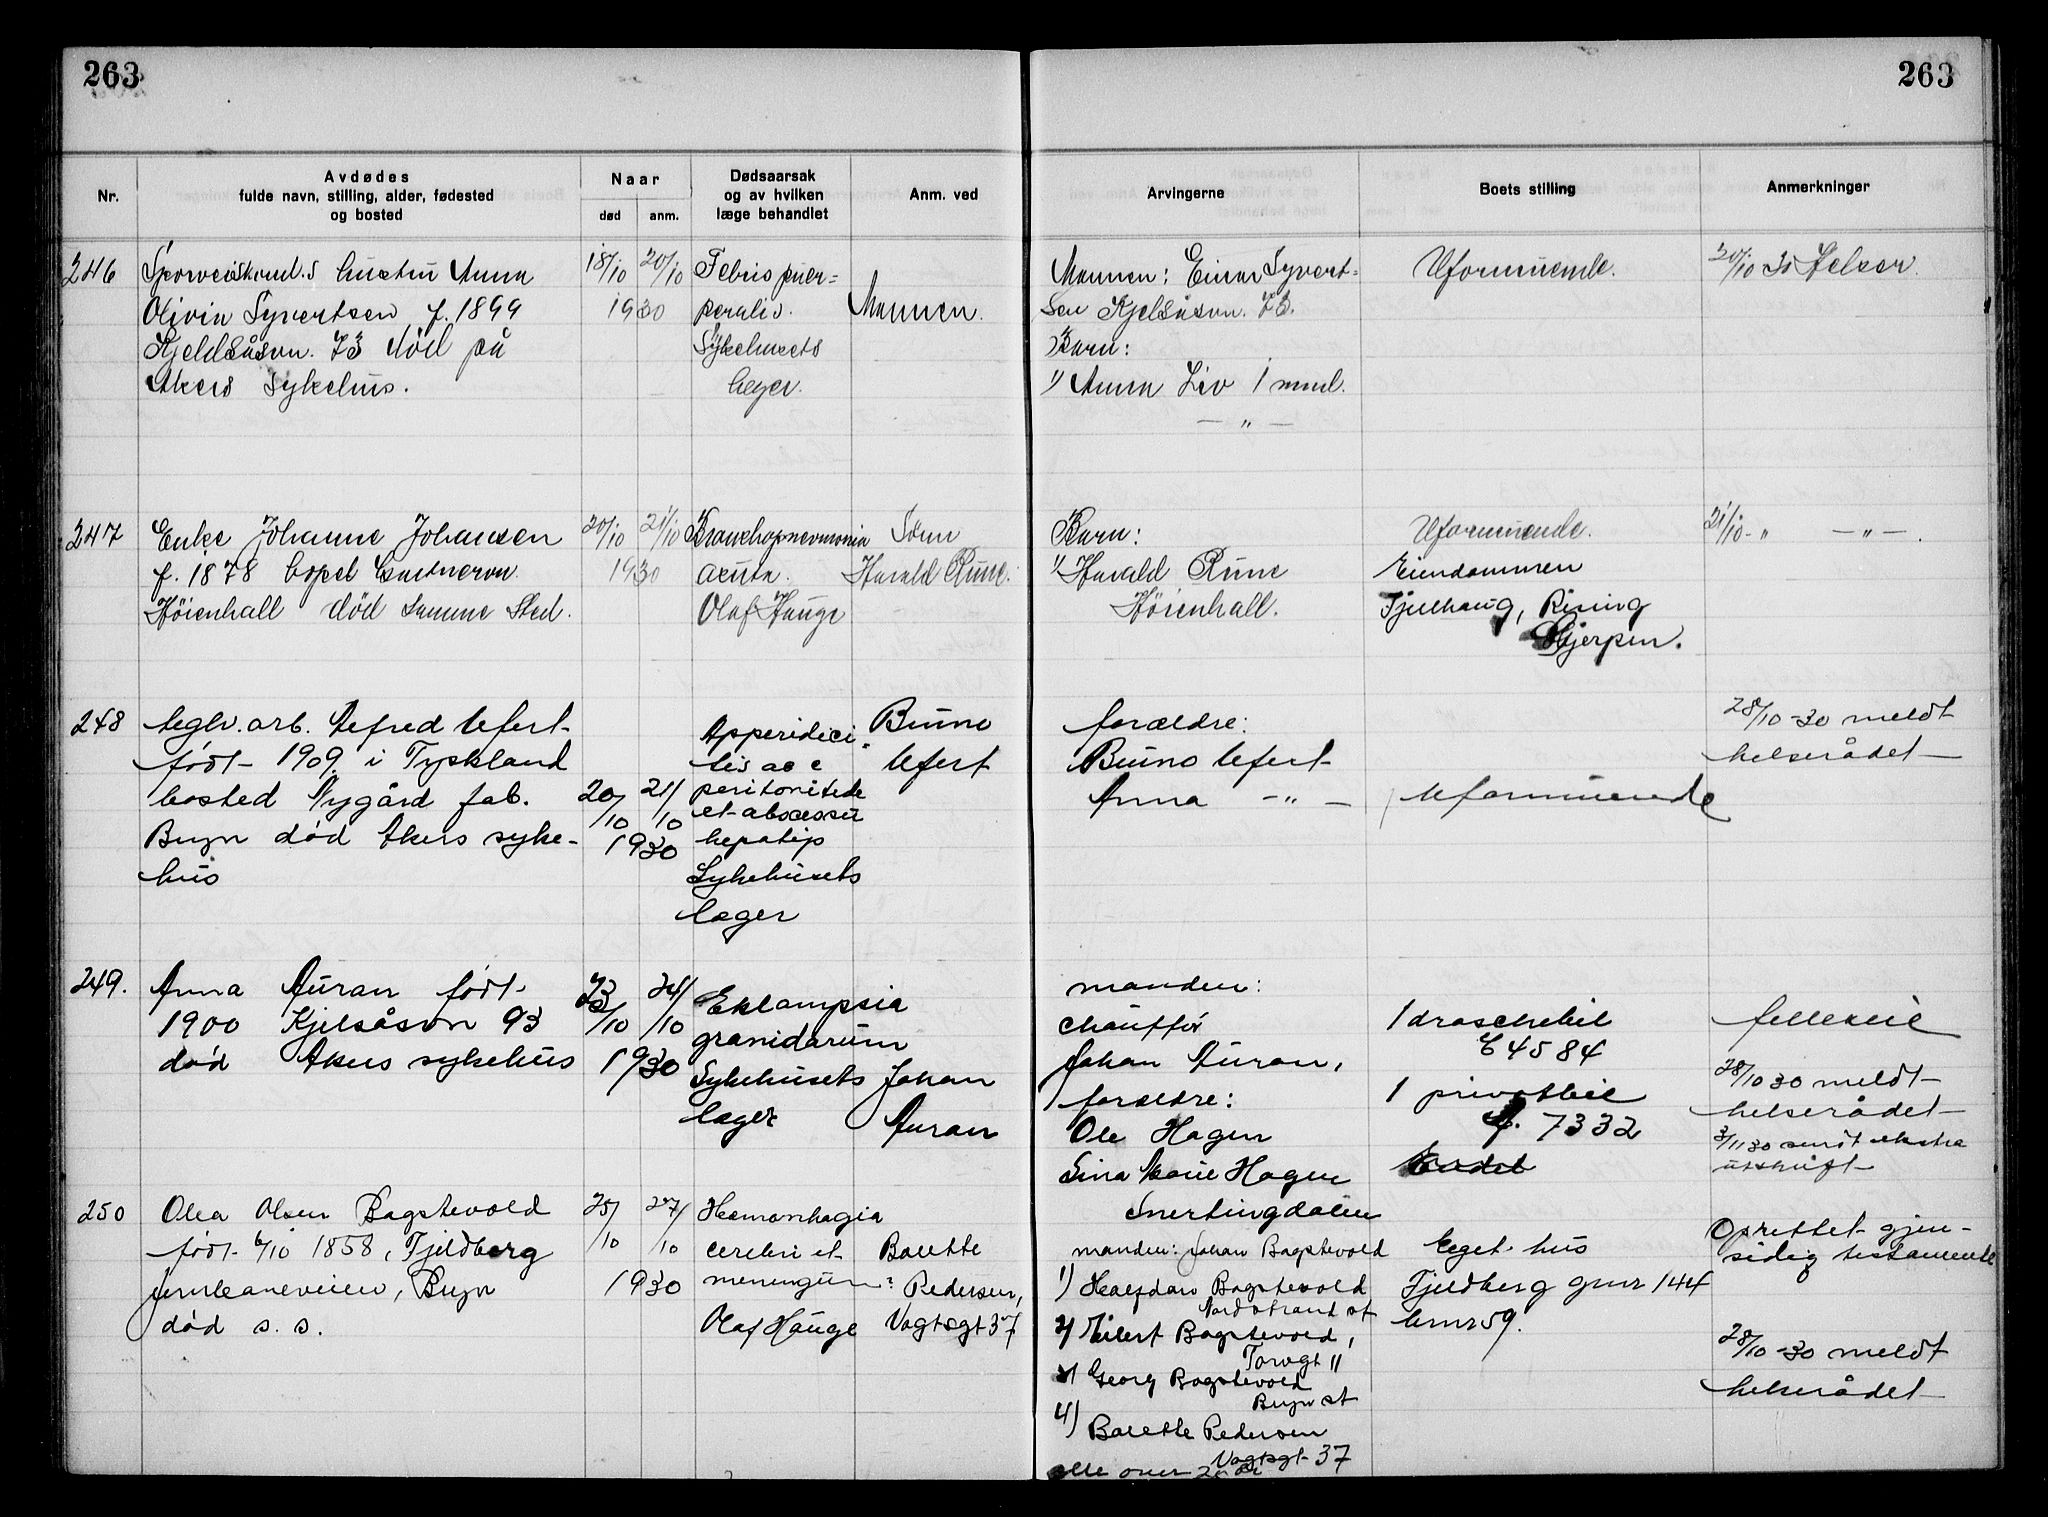 263
263
Nr.
Avdødes
fulde navn, stilling, alder, fødested
og bosted
Naar
død
anm.
Dødsaarsak
og av hvilken
læge behandlet
Anm. ved
Arvingerne
Boets stilling
Anmerkninger
246
Sporveiskond.s hustru Anna
Olivia Syvertsen f. 1899
Kjeldsåsvn. 73 død på
Akers Sykehus.
18/10 20/10
1930
Febris puer=
peralis.
Sykehusets
læger.
Mannen.
Mannen: Einar Syvert=
sen Kjelsåsvn. 73.
Barn:
1) Anna Liv 1 mnd.
— " —
Uformuende.
20/10 30 Helser.
247
Enke Johanne Johansen
f. 1878 bopel Gartnervn.
Höienhall död samme sted.
20/10 21/10
1930
Bronchopneumonia
acuta.
Olaf Hauge
Sönn
Harald Rune.
Barn:
1) Harald Rune
Höienhall.
Uformuende.
Eiendommen
Fjelhaug, Rising
Gjerpen.
21/10 - " — " — .
248
teglv. arb. Alfred Ufert
født 1909 i Tyskland
bosted Nygård fab.
Bryn død Akers syke-
hus
20/10 21/10
1930
Appendici-
tis ac c
peritonitede
et abscessu
hepatis
Sykehusets
læger
Bruno
Ufert
forældre:
Bruno Ufert
Anna — " —
Uformuende
28/10 -30 meldt
helserådet
249.
Anna Auran født
1900 Kjelsåsvn 93
død Akers sykehus
23/10 24/10
1930
Eklampsia
gravidarum
Sykehusets
læger
Johan
Auran
manden:
chauffør
Johan Auran,
forældre:
Ole Hagen
Lina Marie Hagen
Snertingdalen
1 droschebil
C 4584
1 privatbil
A. 7332
felleseie
28/10 30 meldt
helserådet
3/11 30 sendt ekstra
utskrift
250
Olea Olsen Bagstevold
født 6/10 1858, Fjeldberg
Jernbaneveien, Bryn
død s. s.
25/10 27/10
1930
Hæmorrhagia
cerebri et
meningum?
Olaf Hauge
Borette
Pedersen,
Vogtsgt 37
manden: Johan Bagstevold
1) Halfdan Bagstevold
Nordstrand st
2) Eilert Bagstevold,
Torvgt 11
3) Georg Bagstevold
Bryn st
4) Borette Pedersen
Vogtsgt 37
alle over 20 år
Eget hus
Fjeldberg gnr 144
bnr 59.
Oprettet gjen-
sidig testamente
28/10 -30 meldt
helserådet